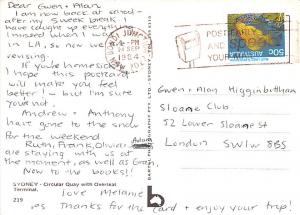 Dear Gwen + Alan
I am now back at
after my 3 week break. I
have caught up everything
I missed when I was
in LA, so now we're
revising.
If you're homesick
I hope this postcard
will make you feel
better – but I'm sure
your not.
Andrew + Anthony
have gone to the snow
for the weekend
Ruth, Frank, Olivia
are staying with us at
the moment, as well as Gran.
Now to the books!!
love Melanie
P.S. Thanks for the card + enjoy your trip!
SYDNEY - Circular Quay with Overseas
Terminal.
219
1984
POSTCODE
AUSTRALIA
50c
Gwen + Alan Higginbotham
Sloane Club
52 Lower Sloane St
London SW1W 8BS